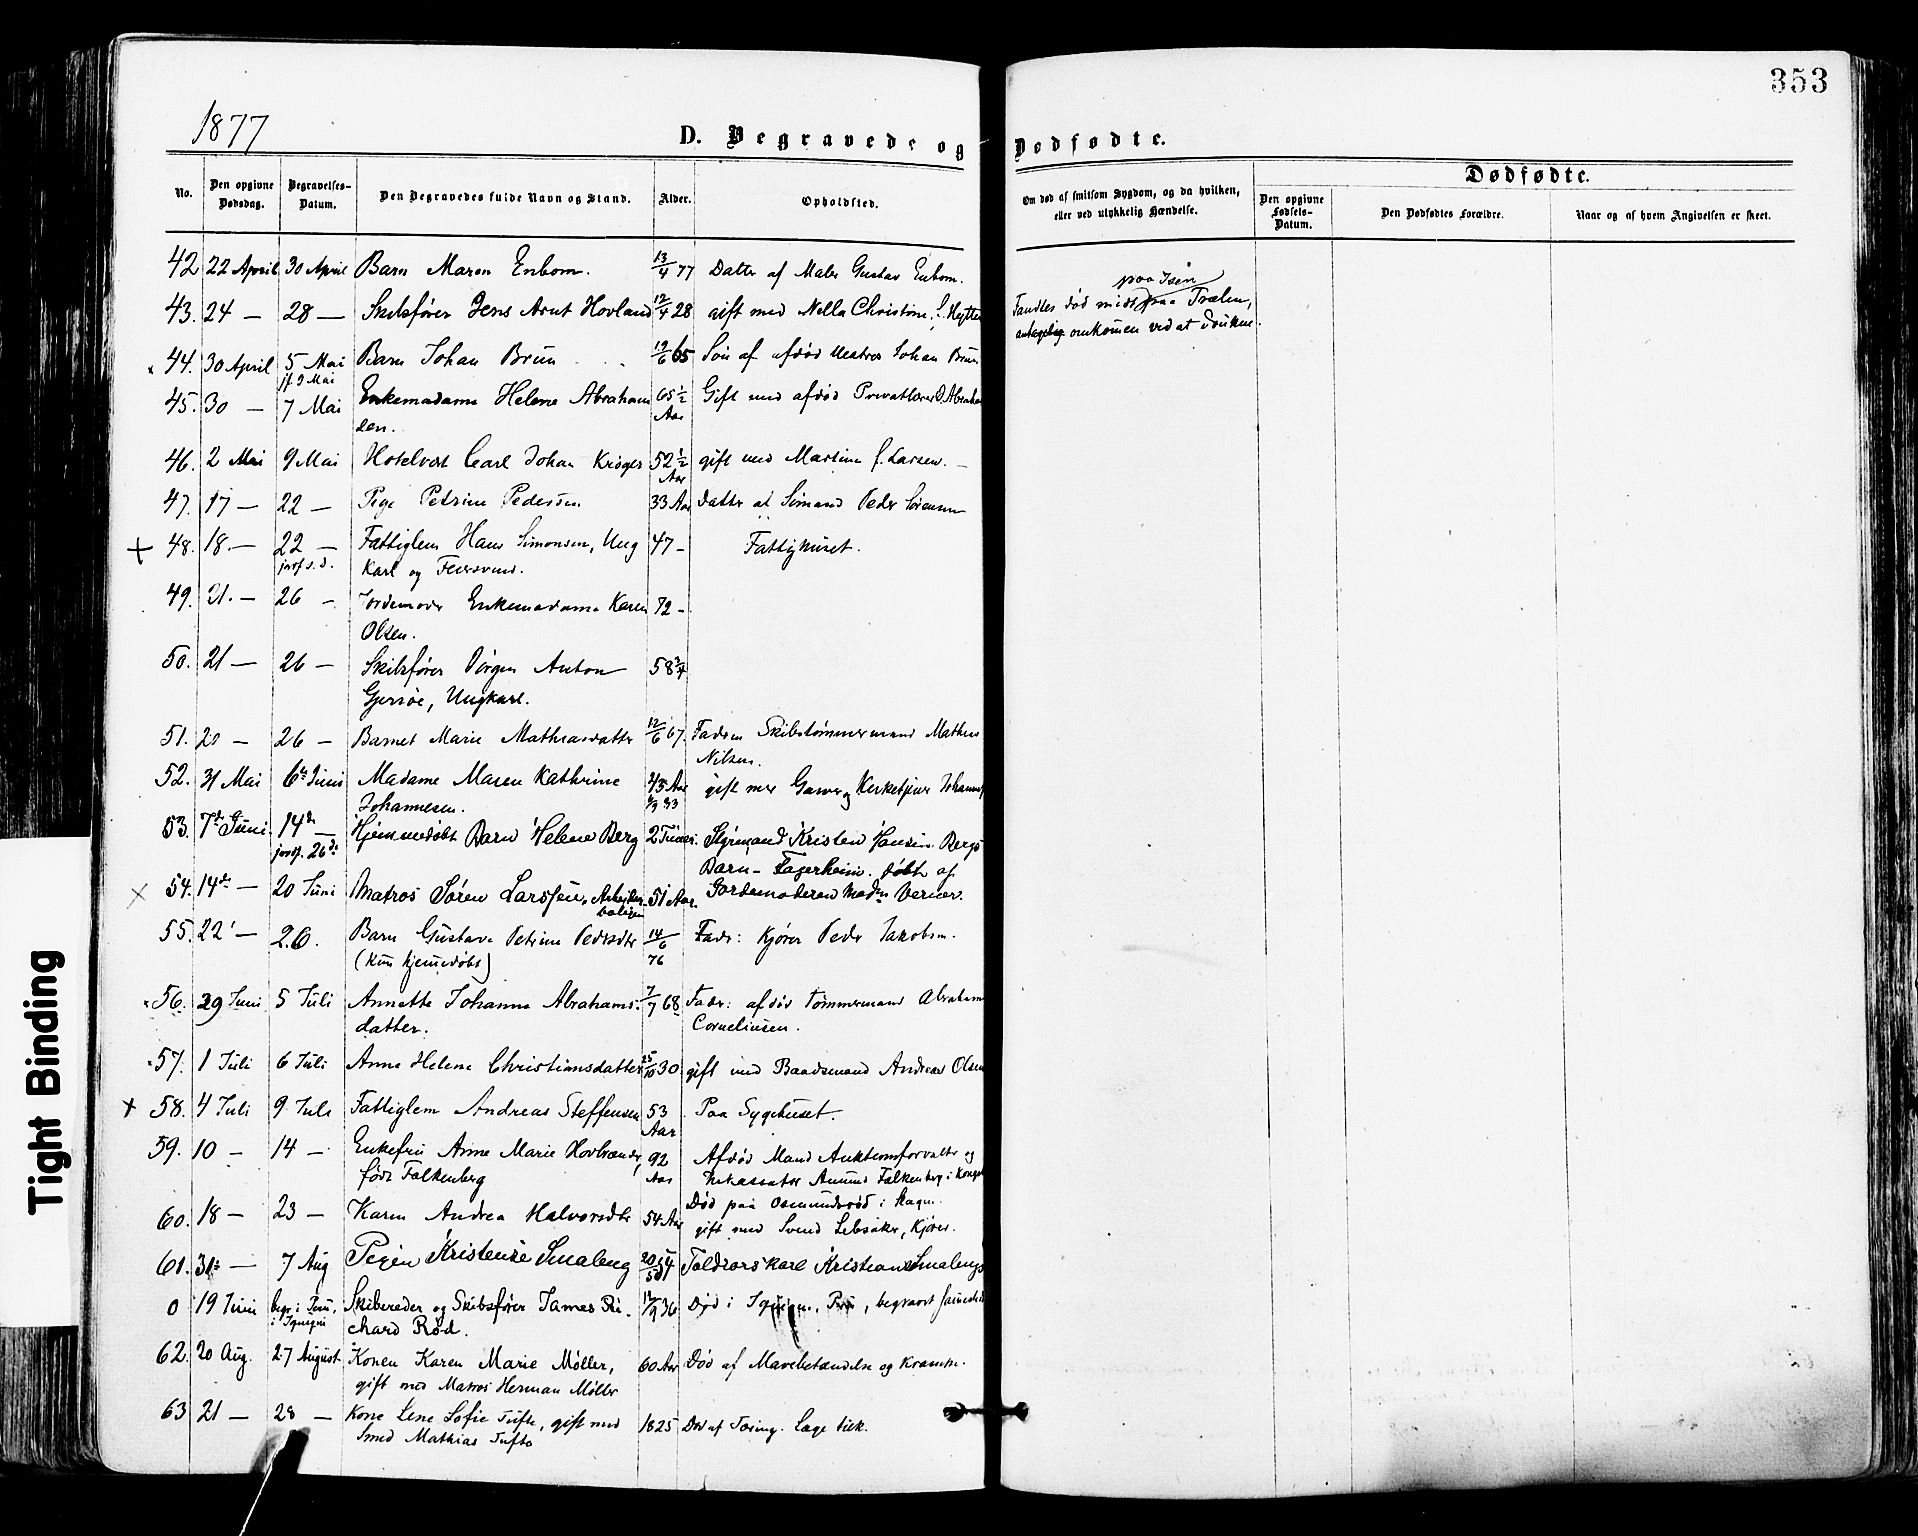 353
1877
D. Begravede og Dødfødte.
No.
Den opgivne Dødsdag.
Begravelses-Datum.
Den Begravedes fulde Navn og Stand.
Alder.
Opholdsted.
Om død af smitsom Sygdom, og da hvilken, eller ved ulykkelig Hændelse.
Dødfødte.
Den opgivne Fødsels-Datum.
Den Dødfødtes Forældre.
Naar og af hvem Angivelsen er skeet.
42 22 April 30 April Barn Maren Enbom. 13/4 77 Datter af Maler Gustav Enbom.
paa Isen
43. 24 — 28 — Skibsfører Jens Arnt Hovland 12/4 28 gift med Nella Christine f. Hytten Fandtes død midt paa Fralen,
antagelig omkommen ved at drukne.
44. 30 April 5 Mai Barn Johan Brun 19/6 65 Søn af afdød Matros Johan Brun
jf. 9 Mai
45. 30 — 7 Mai Enkemadame Helene Abraham 65 1/2 Gift med afdød Privatlærer O. Abraham
sen. Aar
46. 2 Mai 9 Mai Hotelvert Carl Johan Krøger 52 1/2 gift med Martine f. Larsen. —
Aar
47. 17 — 22 — Pige Petrine Pedersen 33 Aar Datter af Sømand Peder Sørensen
+ 48. 18. — 22 — Fattiglem Hans Simonsen, Ung 47 - Fattighuset.
jordf. s. d. karl og Feiersvend.
49. 21. — 26 — Jordemoder Enkemadame Karen 72 -
Olsen.
50. 21 — 26 — Skibsfører Jørgen Anton 58 3/4
Gjersøe, Ungkarl.
51. 20 — 26 — Barnet Marie Mathiasdatter 12/6 67. Faderen Skibstømmermand Mathias
Nilsen.
52. 31 Mai 6te Juni Madame Maren Kathrine 43 Aar gift med Garver og Kirketjener Johannes
Johannesen. 33
53. 7de Juni 14de — Hjemmedøbt Barn Helene Berg 2 Timer. Styrmand Kristen Hansen Bergs
jordf. 26de Barn — Fagerheim. døbt af
× 54. 14de — 20 Juni Matros Søren Larssen, Arbeider 51 Aar. Jordemoderen Madm Verner.
55. 22 — 26. Barn Gustava Petrine Pedersdtr 14/6 76 Fader: Kjører Peder Jakobsen.
(kun hjemmedøbt)
56. 29 Juni 5 Juli Annette Johanne Abrahams- 7/7 68 Fader: afdød Tømmermand Abraham
datter. Corneliusen.
57. 1 Juli 6 Juli Anne Helene Christiansdatter 25/10 30 gift med Baadsmand Andreas Olsen
+ 58. 4 Juli 9 Juli Fattiglem Andreas Steffensen 53 Paa Sygehuset.
Aar
59. 10 — 14 — Enkefru Anne Marie Hovbrender, 92 Afdød Mand Auktionsforvalter og
født Falkenberg Aar Inkassator Amund Falkenberg i
60. 18 — 23 — Karen Andrea Halvorsdtr 54 Aar Død paa Osmundsrød i Skagen.
gift med Svend Lebsaker, Kjører.
61. 31te — 7 Aug Pigen Kristense Smaleng 20/5 54 Toldrorskarl Kristian Smalengs
0 19 Juni begr. i Peru, Skibsreder og Skibsfører James Ri- 12/9 36 Død i Iquique, Peru, begravet sammesteds
i Iquique chard Rød.
62. 20 Aug. 27 August Konen Karen Marie Møller, 60 Aar Død af Mavebetændelse og Krampe.
gift med Matros Herman Møller
63 21 — 28 — Kone Lene Sofie Tufte, gift med 1825 Død af Tæring. Læge Vilk.
Smed Mathias Tufte
Tight Binding